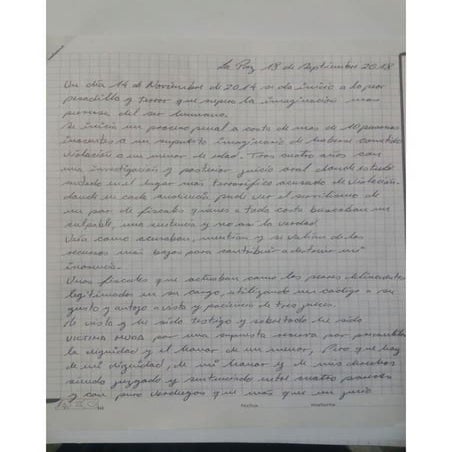 La Paz 18 de Septiembre 2018
Un día 14 de Noviembre de 2014 se da inicio a la peor
pesadilla y terror que supera la imaginación mas
perversa del ser humano.
Se inicia un proceso penal a costa de mas de 10 personas
inocentes a un supuesto imaginario de haberse cometido
violación a un menor de edad. Tras cuatro años con
una investigación y posterior juicio oral donde estado
en el lugar mas terrorífico acusado de violación.
donde en cada audiencia pude ver el servilismo de
un par de fiscales quienes a toda costa buscaban un
culpable, una sentencia y no asi la verdad.
Veia como acusaban, mentian y se valian de los
recursos mas bajos para contribuir a destruir mi
inocencia.
Unos fiscales que actuaban como los peores delincuentes
legitimados en su cargo, utilizando un código a su
gusto y antojo a vista y paciencia de tres jueces.
He visto y he sido testigo y sobretodo he sido
VICTIMA MUDA por una supuesta reserva por
la dignidad y el honor de un menor, Pero que hay
de mi dignidad, de mi honor y de mis derechos
siendo juzgado y sentenciado entre cuatro paredes
y con puro verdugos que mas que un juicio